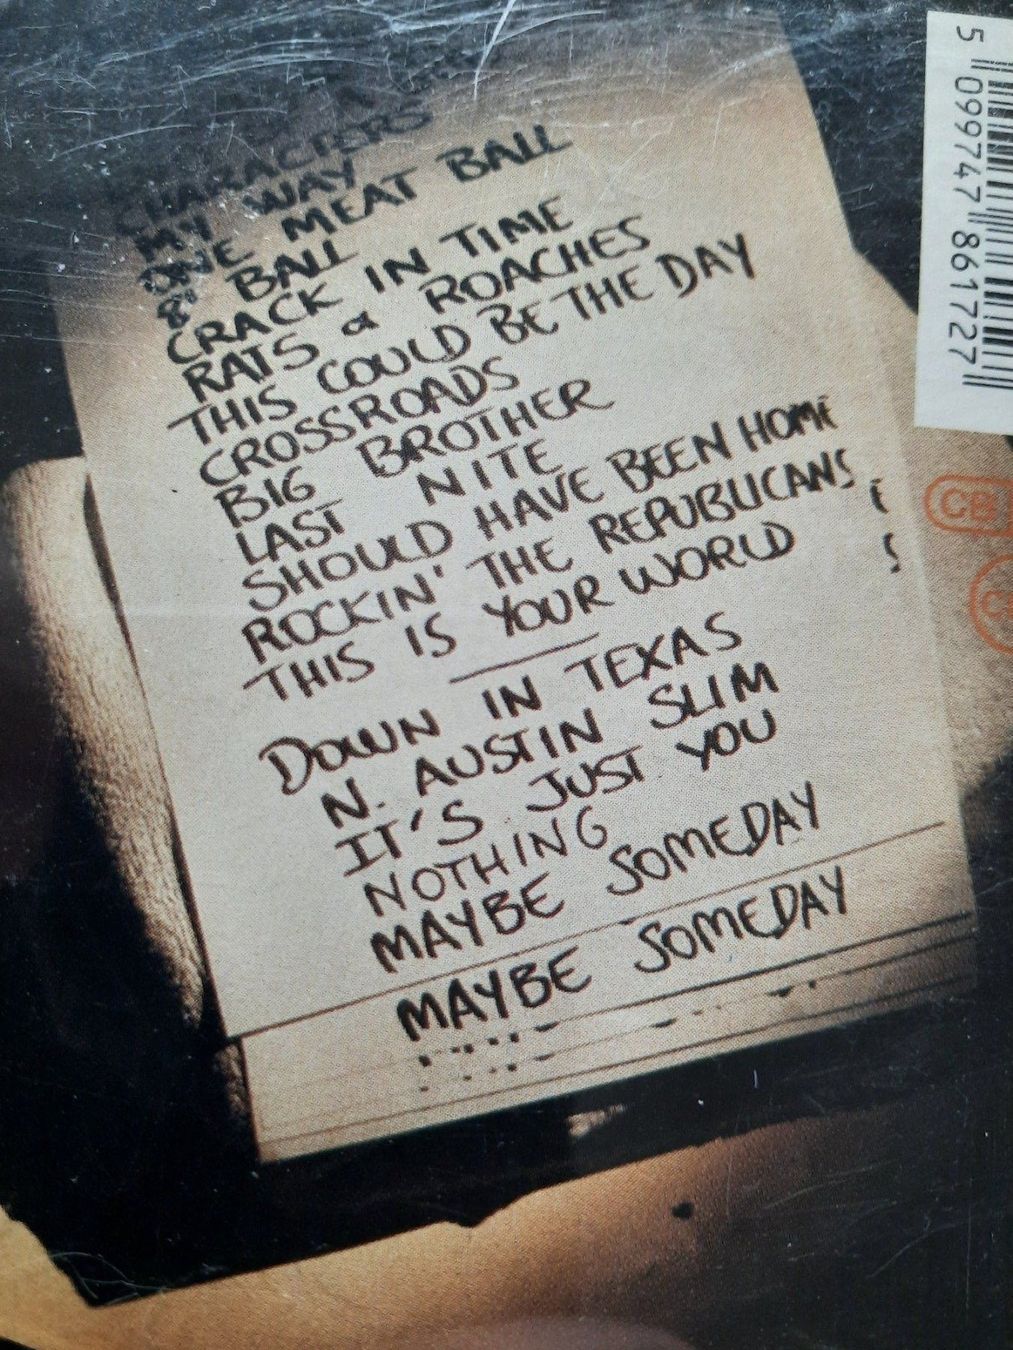 CHARACTERS
MY WAY
ONE MEAT BALL
8 BALL
CRACK IN TIME
RATS & ROACHES
THIS COULD BE THE DAY
CROSSROADS
BIG BROTHER
LAST NITE
SHOULD HAVE BEEN HOME
ROCKIN' THE REPUBLICANS
THIS IS YOUR WORLD
DOWN IN TEXAS
N. AUSTIN SLIM
IT'S JUST YOU
NOTHING
MAYBE SOMEDAY
MAYBE SOMEDAY
5 099747 861727
CB